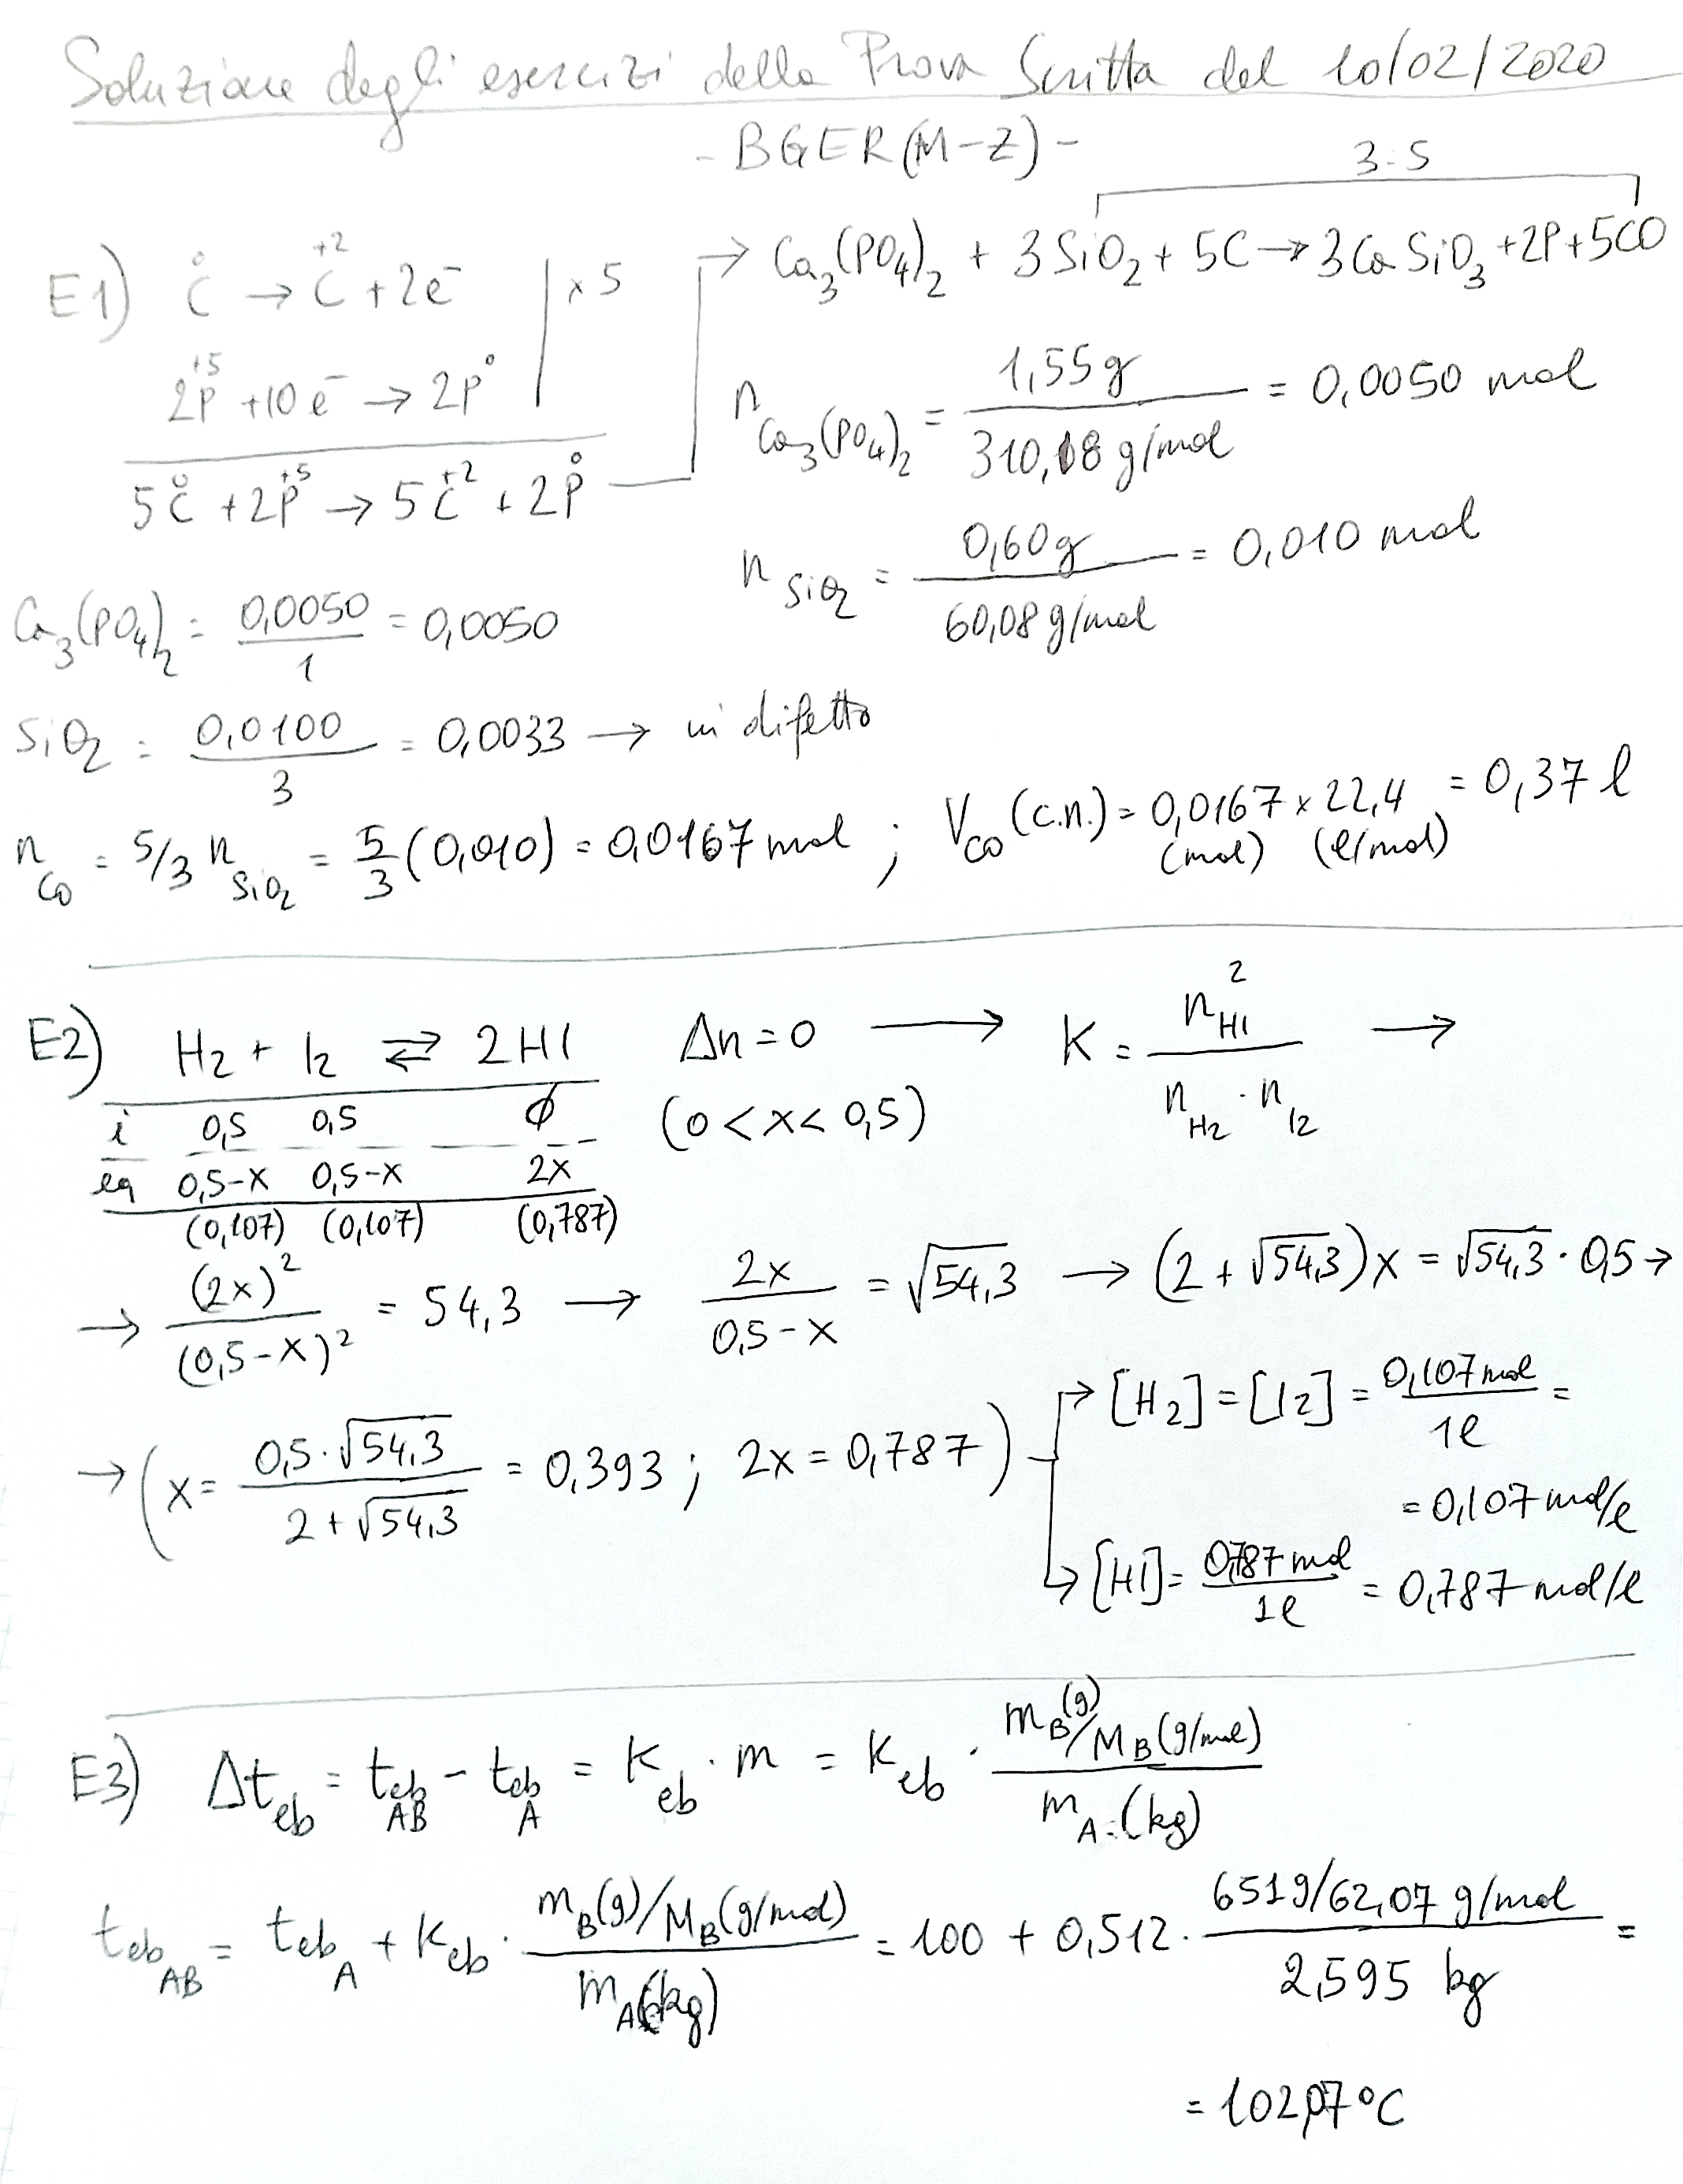 Soluzione degli esercizi della Prova Scritta del 10/02/2020
- BGER (M-Z) -
3:5
E1) C⁰ → C⁺² + 2e⁻ | x 5
2P⁺⁵ + 10e⁻ → 2P⁰
5C⁰ + 2P⁺⁵ → 5C⁺² + 2P⁰
→ Ca₃(PO₄)₂ + 3SiO₂ + 5C → 3CaSiO₃ + 2P + 5CO
n Ca₃(PO₄)₂ = 1,55g / 310,18 g/mol = 0,0050 mol
n SiO₂ = 0,60g / 60,08 g/mol = 0,010 mol
Ca₃(PO₄)₂ = 0,0050 / 1 = 0,0050
SiO₂ = 0,0100 / 3 = 0,0033 → in difetto
n CO = 5/3 n SiO₂ = 5/3 (0,010) = 0,0167 mol ; V CO (c.n.) = 0,0167 x 22,4 = 0,37 l
(mol) (l/mol)
E2) H₂ + I₂ ⇄ 2HI Δn = 0 → K = n²HI / n H₂ · n I₂ →
i 0,5 0,5 ϕ (0 < x < 0,5)
eq 0,5-x 0,5-x 2x
(0,107) (0,107) (0,787)
→ (2x)² / (0,5-x)² = 54,3 → 2x / 0,5-x = √54,3 → (2 + √54,3)x = √54,3 · 0,5 →
→ (x = 0,5·√54,3 / 2+√54,3 = 0,393 ; 2x = 0,787)
→ [H₂] = [I₂] = 0,107 mol / 1l =
= 0,107 mol/l
→ [HI] = 0,787 mol / 1l = 0,787 mol/l
E3) Δt eb = t eb AB - t eb A = K eb · m = K eb · m B (g) / M B (g/mol) / m A = (kg)
t eb AB = t eb A + K eb · m B (g) / M B (g/mol) / m A (kg) = 100 + 0,512 · 651g/62,07 g/mol / 2,595 kg =
= 102,07 °C